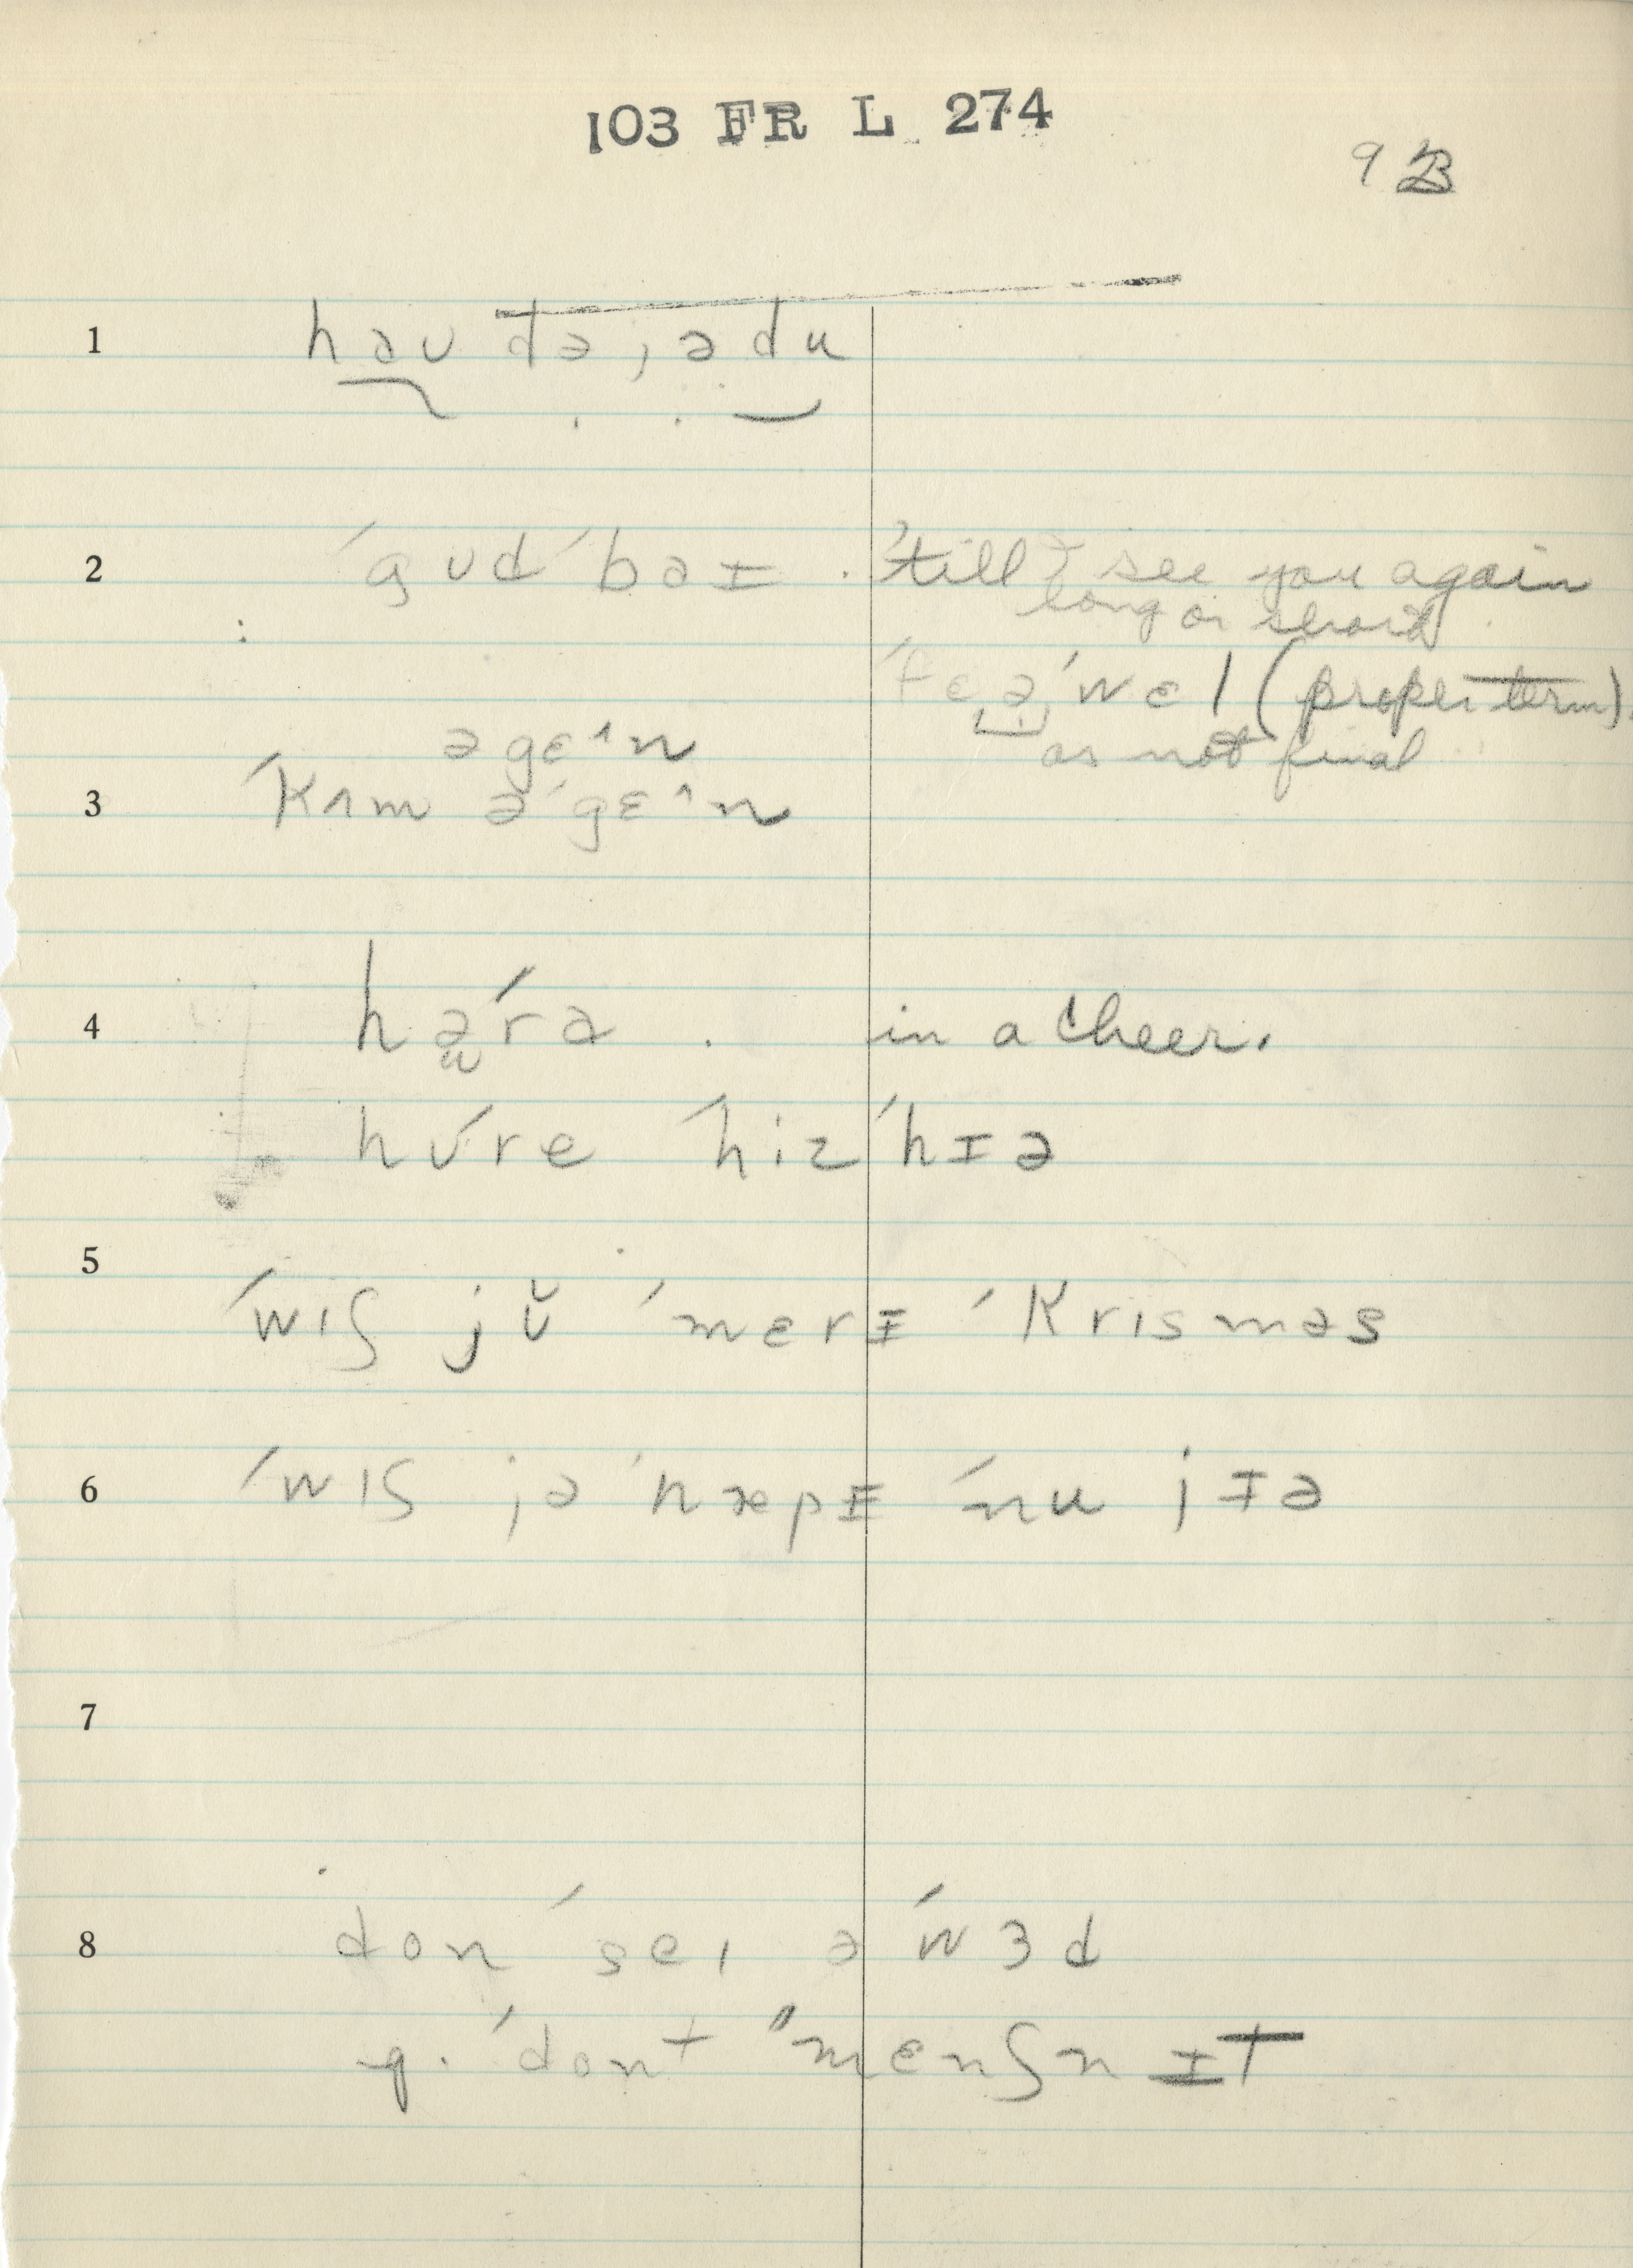 103 FR L 274
9 B
1 həʊ də, ə du
2 ˈgʊdˈbəɪ . 'till I see you again
long or short
ˈfɛəˈwɛl (proper term)
as not final
əgɛ^n
3 ˈkʌm əˈgɛ^n
4 həˈrə . in a cheer.
hʊˈre ˈhizˈhɪə
5
ˈwɪʃ jʊ̆ ˈmɛrɪ ˈkrɪsməs
6 ˈwɪʃ jə ˈhæpɪ ˈnu jɪə
7
8 don ˈseɪ ə ˈwɜd
q. ˈdont "mɛnʃn ɪt